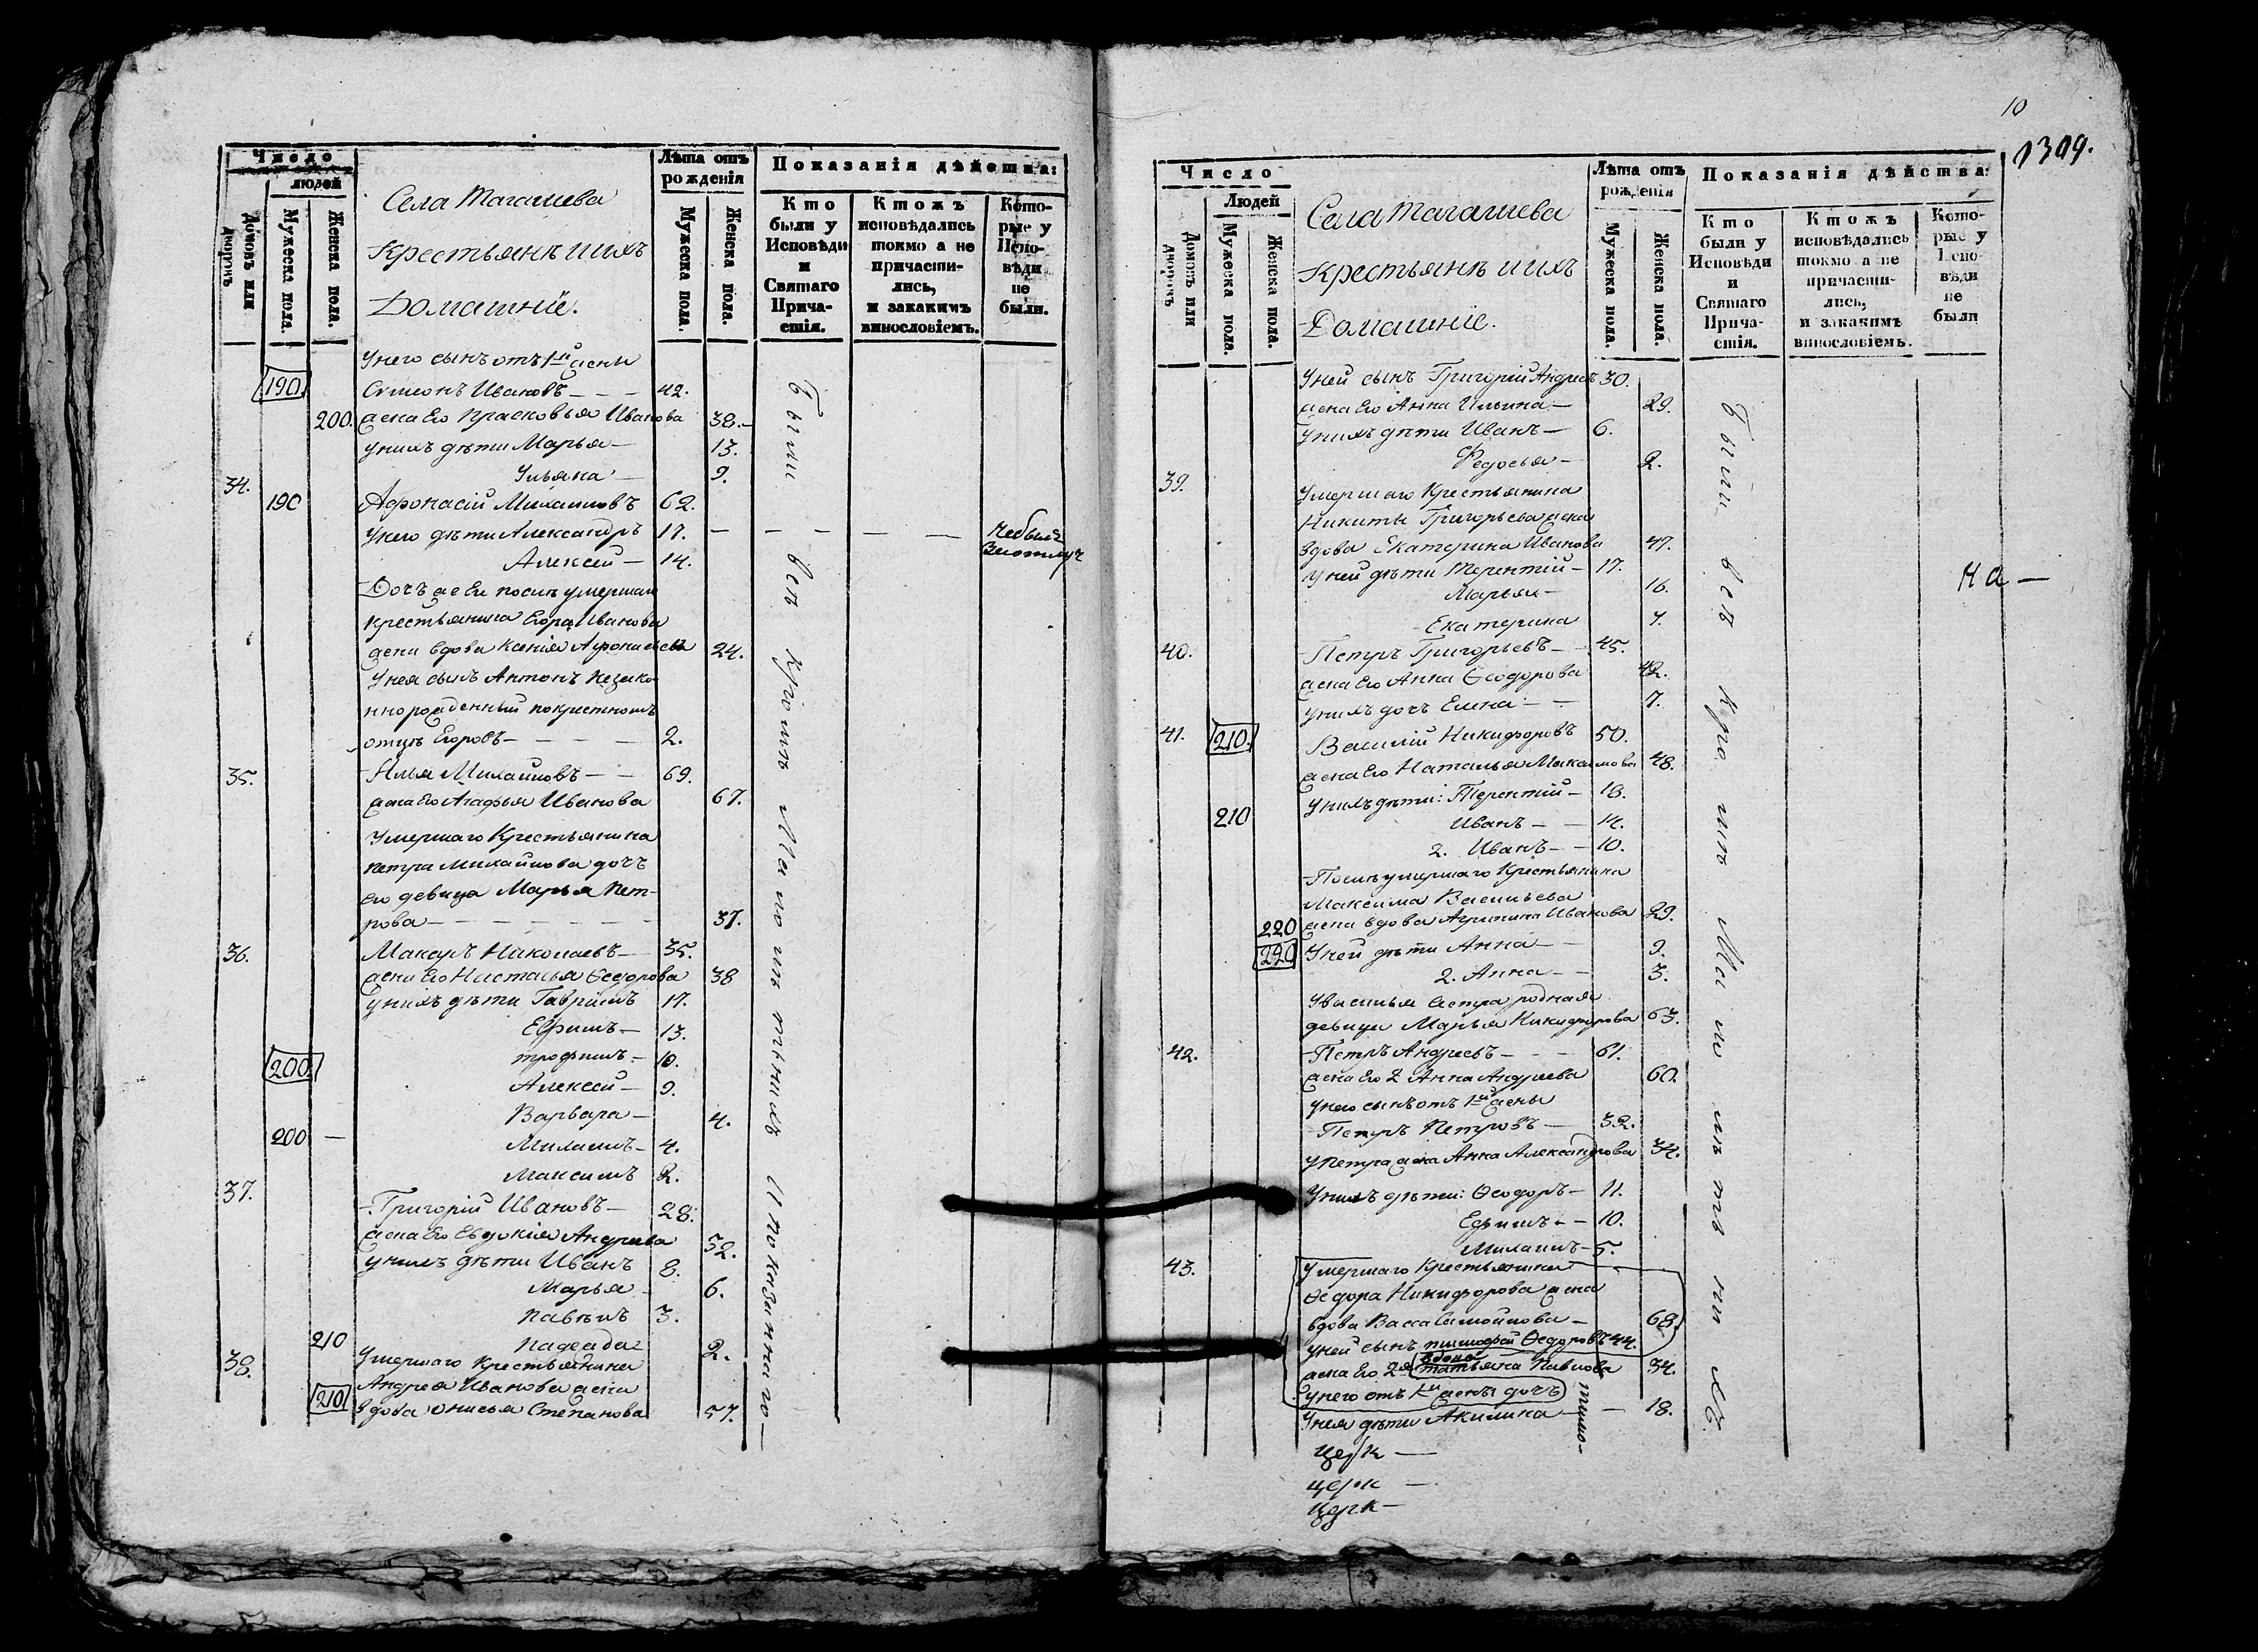 Число
Лѣта отъ рожденія
Показанія дѣйства:
людей
Домовъ или дворовъ
Мужеска пола.
Женска пола.
Села Тагашева
Крестьянѣ и ихъ
Домашніе.
Мужеска пола.
Женска пола.
Кто были у Исповѣди и Святаго Прича-стія.
Ктожъ исповѣдались токмо а не причасти-лись, и закакимъ винословіемъ.
Кото-рые у Испо-вѣди не были.
У него сынъ отъ 1й жены
190 Симеонъ Ивановъ — 42.
200. жена Его Прасковья Иванова 38.
У нихъ дѣти Марья — 13.
Ульяна — 9.
34.
190 Афонасій Михайловъ 62.
У него дѣти Александръ 17. — — — — — Небылъ
Алексей — 14.
Дочь же Ея послѣ умершаго
крестьянина Егора Иванова
жена вдова Ксенія Афонасьева 24.
У нея сынъ Антонъ незако-
ннорожденный по крестному
отцу Егоровъ — 2.
35. Илья Михайловъ — 69.
жена Его Агафья Иванова 67.
Умершаго Крестьянина
Петра Михайлова дочь
его девица Марья Пет-
рова — 37.
36. Николаевъ — 35.
жена Его Настасья Ѳедорова 38
у нихъ дѣти Гаврилъ 17.
Ефимъ — 13.
200 трофимъ — 10.
Алексей — 9.
Варвара — 4.
200 — — 4.
Максимъ 2.
37. Григорій Ивановъ — 28.
жена Его Евдокія Андреева 52.
у нихъ дѣти Иванъ 8.
Марья 6.
Павелъ 3.
210 Надежда 2.
38. Умершаго Крестьянина
Андрея Иванова жена
210 вдова Анисья Степанова 57.
Были всѣ кромѣ Малолѣтнихъ и показаннаго —
10
1309.
Число
Лѣта отъ рожденія
Показанія дѣйства:
Людей
Домовъ или дворовъ
Мужеска пола.
Женска пола.
Села Тагашева
Крестьянѣ и ихъ
Домашніе.
Мужеска пола.
Женска пола.
Кто были у Исповѣди и Святаго Прича-стія.
Ктожъ исповѣдались токмо а не причасти-лись, и закакимъ винословіемъ.
Кото-рые у Испо-вѣди не были
У ней сынъ Григорій Андреевъ 30.
жена Его Анна Ильина — 29.
У нихъ дѣти Иванъ — 6.
Федосья — 2.
39. Умершаго Крестьянина
Никиты Григорьева жена
вдова Екатерина Иванова 47.
У ней дѣти Терентій — 17.
Марья — 16.
Екатерина
40. Петръ Григорьевъ — 45.
жена Его Анна Ѳеодорова 42.
У нихъ дочь Елена — 7.
41. 210. Василій Никифоровъ 50.
жена Его Наталья Максимова 48.
210 У нихъ дѣти: Терентій — 18.
Иванъ — 14.
2. Иванъ — 10.
Послѣ умершаго Крестьянина
Максима Васильева
220 жена вдова Агрипина Иванова 29.
220 У ней дѣти Анна — 9.
2. Анна — 3.
У Василья сестра родная
девица Марья Никифорова 63.
42. Петръ Андреевъ — 61.
жена Его 2 Анна Андреева 60.
У него сынъ отъ 1й жены
Петръ Петровъ — 32.
У Петра жена Анна Александрова 34.
У нихъ дѣти: Ѳеодоръ — 11.
Ефимъ — 10.
— 5.
43. Умершаго Крестьянина
Ѳедора Никифорова жена
вдова Васса Самойлова — 68.
У ней сынъ Тимофей Ѳедоровъ 44.
вдова
жена Его 2я татьяна Павлова 34.
У него отъ 1й жены дочь
У нея дѣти Акилина — 18.
Были всѣ кромѣ Малолѣтнихъ
на —
церк —
церк —
церк —